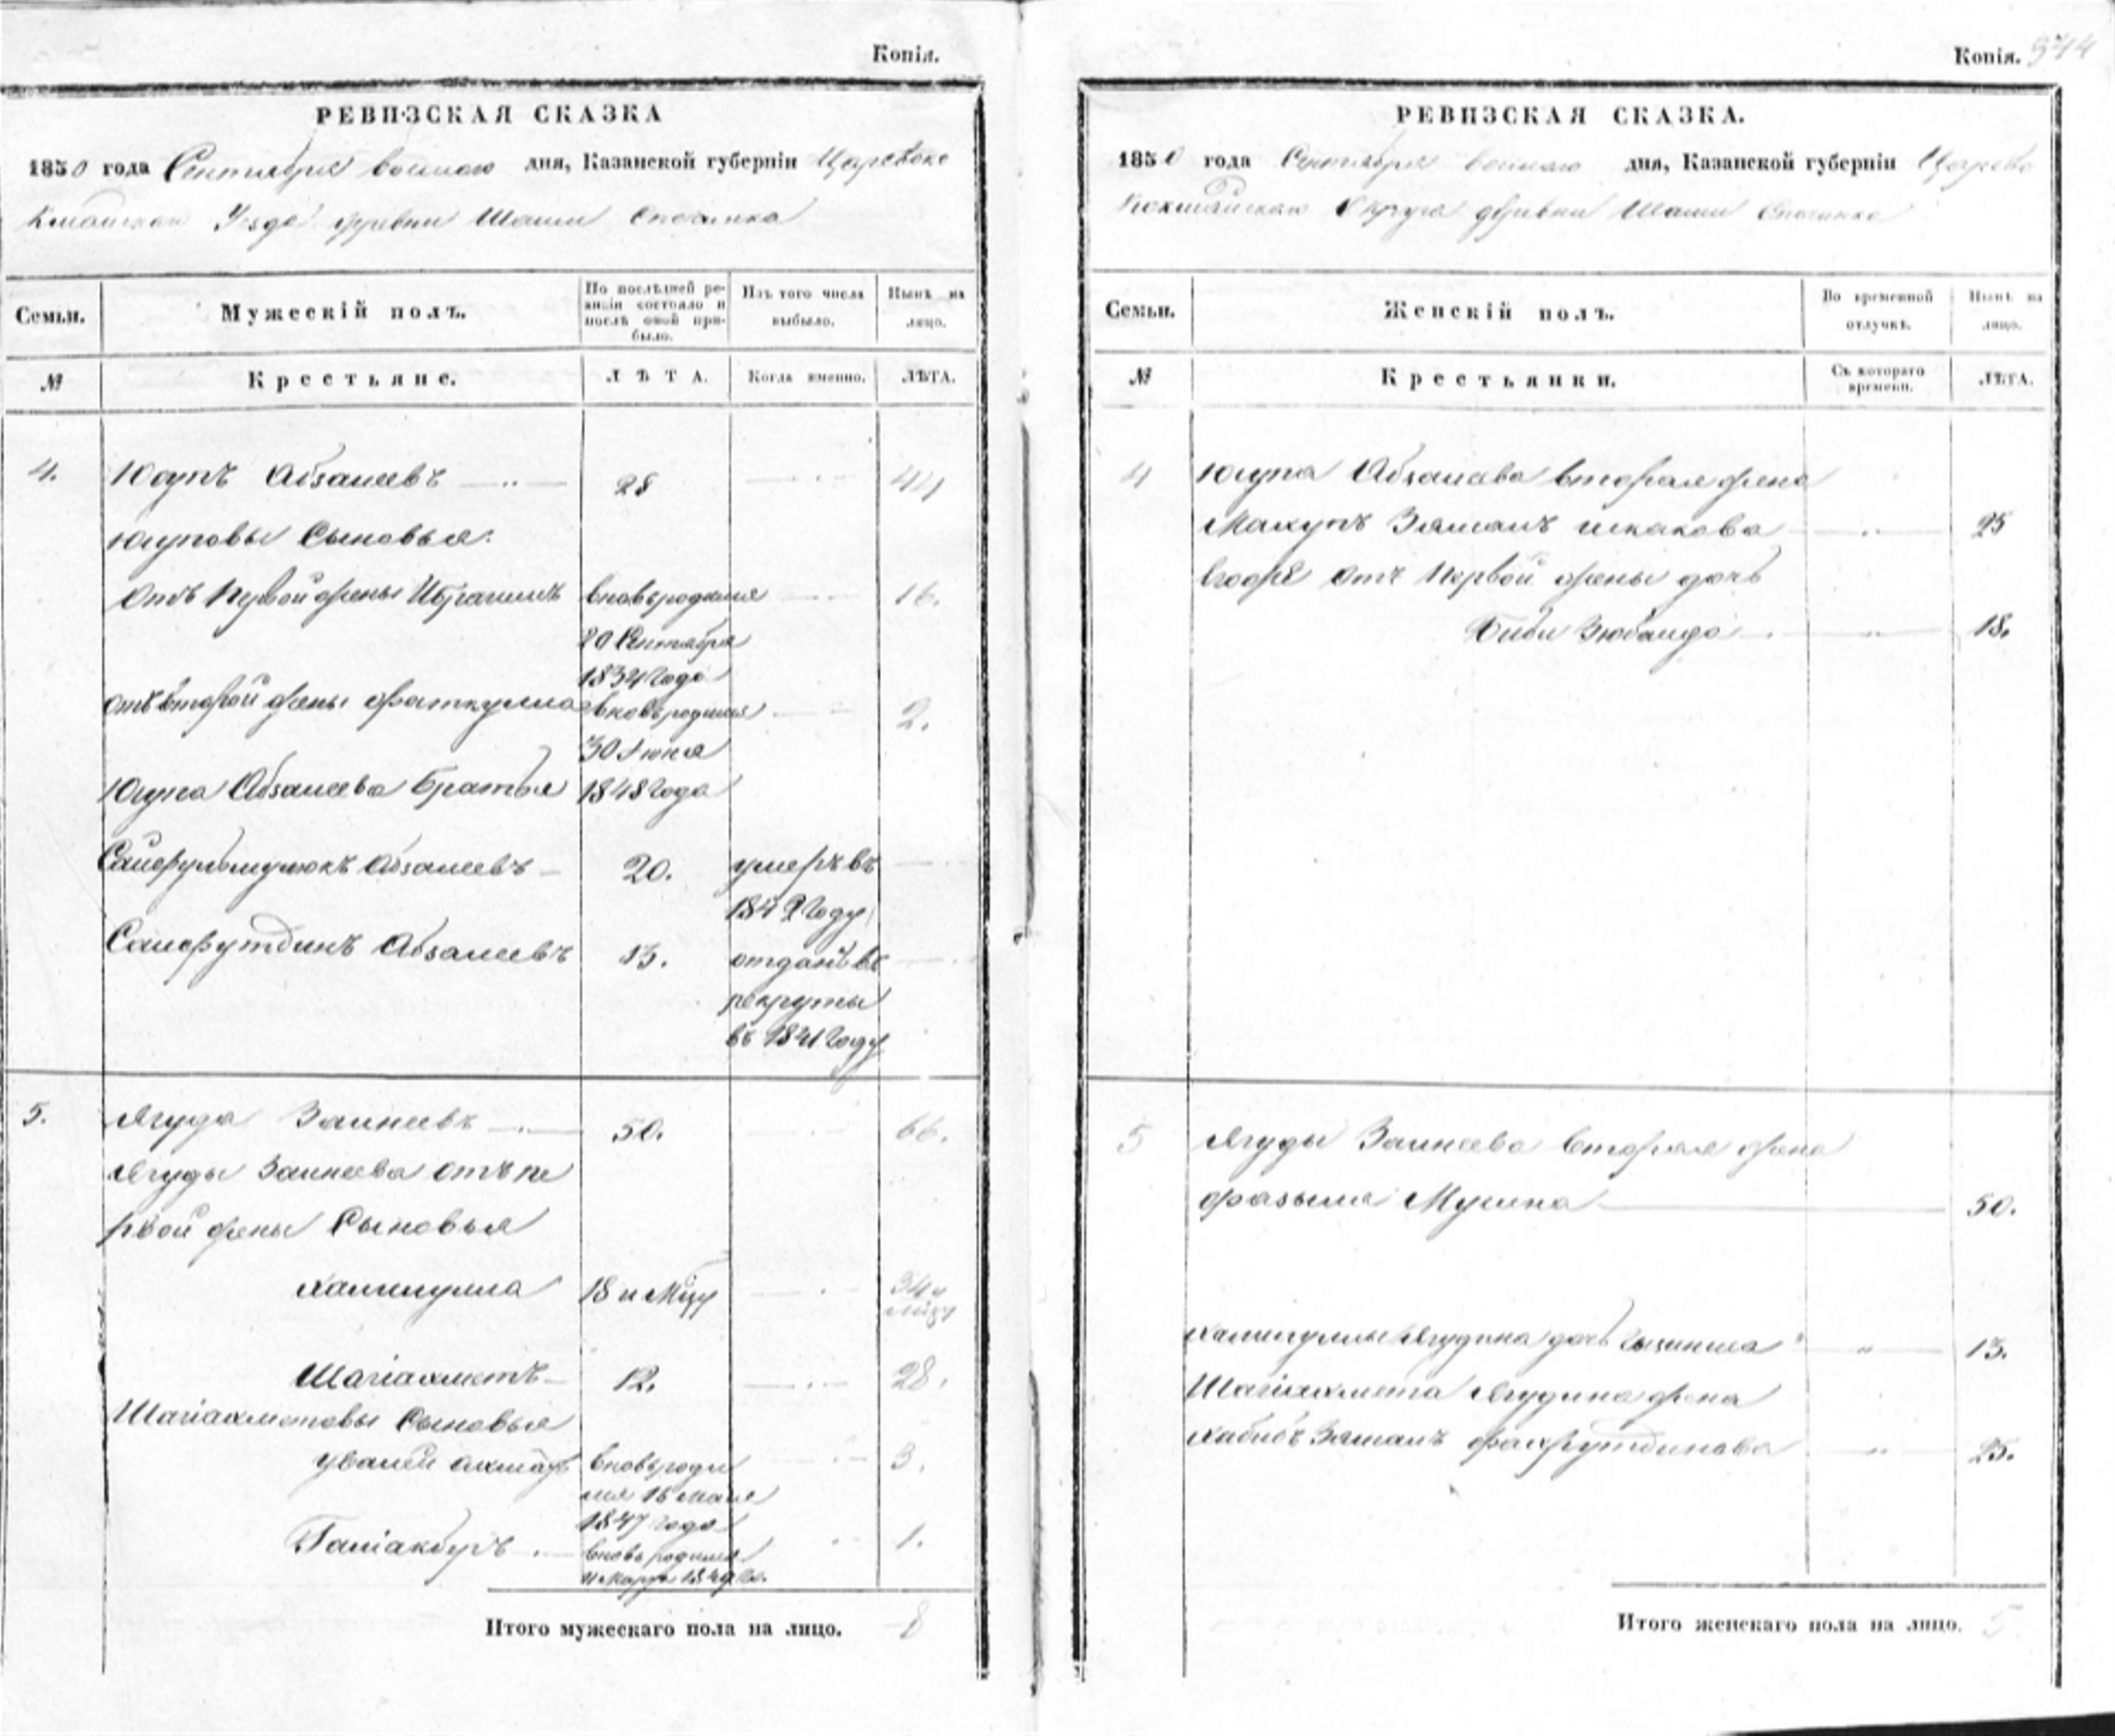 Копія.
РЕВИЗСКАЯ СКАЗКА
1850 года Сентября восмаго дня, Казанской губерніи Царевоко
Уезда деревни Шаши
Семьи.
Мужескій полъ.
По послѣдней ре-
визіи состояло и
послѣ оной при-
было.
Изъ того числа
выбыло.
Нынѣ на
лицо.
№
Крестьяне.
ЛѢТА.
Когда именно.
ЛѢТА.
4. Юсупъ Абзалеевъ 28 44
Юсуповы Сыновья.
Отъ Первой жены Ибрагимъ вновьродился 16.
20 Сентября
1834 года
отъ второй жены Фаткулла вновьродился 2.
30 Июня
Юсупа Абзалеева Братья 1848 года
Сайфульмулюкъ Абзалеевъ 20. умеръ въ
1842 году
Сайфутдинъ Абзалеевъ 13. отданъ въ
рекруты
въ 1841 году
5. Ягуда Заинеевъ 50. 66.
Ягуды Заинеева отъ пе
рвой жены Сыновья
Халиулла 18 и Мцу 34 и
Мцу
Шагіахметъ 12. 28.
Шагіахметовы Сыновья
вновьроди 3.
лся 16 Мая
1847 года
Галіакбуръ вновь родился 1.
11 Марта 1849 го.
Итого мужескаго пола на лицо. 8
Копія. 974
РЕВИЗСКАЯ СКАЗКА.
1850 года Сентября восмаго дня, Казанской губерніи Царево
кокшайскаго Округа деревни Шаши
Семьи.
Женскій полъ.
Во временной
отлучкѣ.
Нынѣ на
лицо.
№
Крестьянки.
Съ котораго
времени.
ЛѢТА.
4 Юсупа Абзалева вторая жена
Махупъ Зямалъ Искакова 25
Отъ Первой жены дочь
Биби Зюбайда 18.
5 Ягуды Заинеева вторая жена
Фазыля Мусина 50.
Халиуллы Ягудина дочь 13.
Шагіахмета Ягудина жена
Хабибъ Зямалъ Фахрутдинова 25.
Итого женскаго пола на лицо. 5